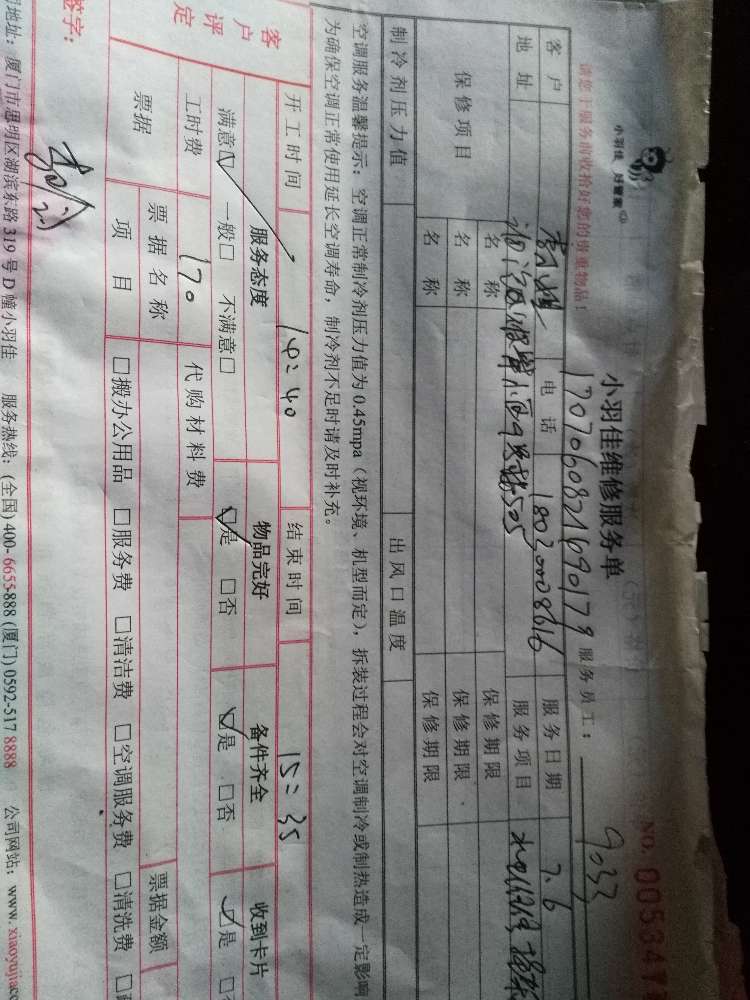 小羽佳 好管家
请您于服务前收拾好您的贵重物品!
小羽佳维修服务单
NO. 005347
1707060821690179 服务员工: 9033
客户 电话 18020008616 服务日期 7.6
地址 服务项目
保修项目 名称 保修期限
名称 保修期限
名称 保修期限
制冷剂压力值 出风口温度
空调服务温馨提示:空调正常制冷剂压力值为0.45mpa(视环境、机型而定),拆装过程会对空调制冷或制热造成一定影响
为确保空调正常使用延长空调寿命,制冷剂不足时请及时补充。
开工时间 14:40 结束时间 15:35
客户评定 服务态度 物品完好 备件齐全 收到卡片
满意☑ 一般□ 不满意□ ☑是 □否 ☑是 □否 ☑是 □否
工时费 170 代购材料费
票据 票据名称 票据金额
项目 □搬办公用品 □服务费 □清洁费 □空调服务费 □清洗费
签字:
司地址:厦门市思明区湖滨东路319号D幢小羽佳 服务热线:(全国)400-6655-888(厦门)0592-517 8888 公司网站:www.xiaoyujia.co